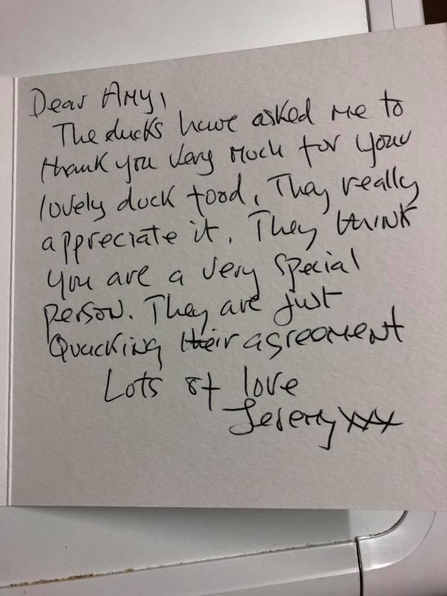 Dear Amy,
The ducks have asked me to
thank you very much for your
lovely duck food. They really
appreciate it. They think
you are a very special
person. They are just
Quacking their agreement
Lots of love
Jeremy xxx